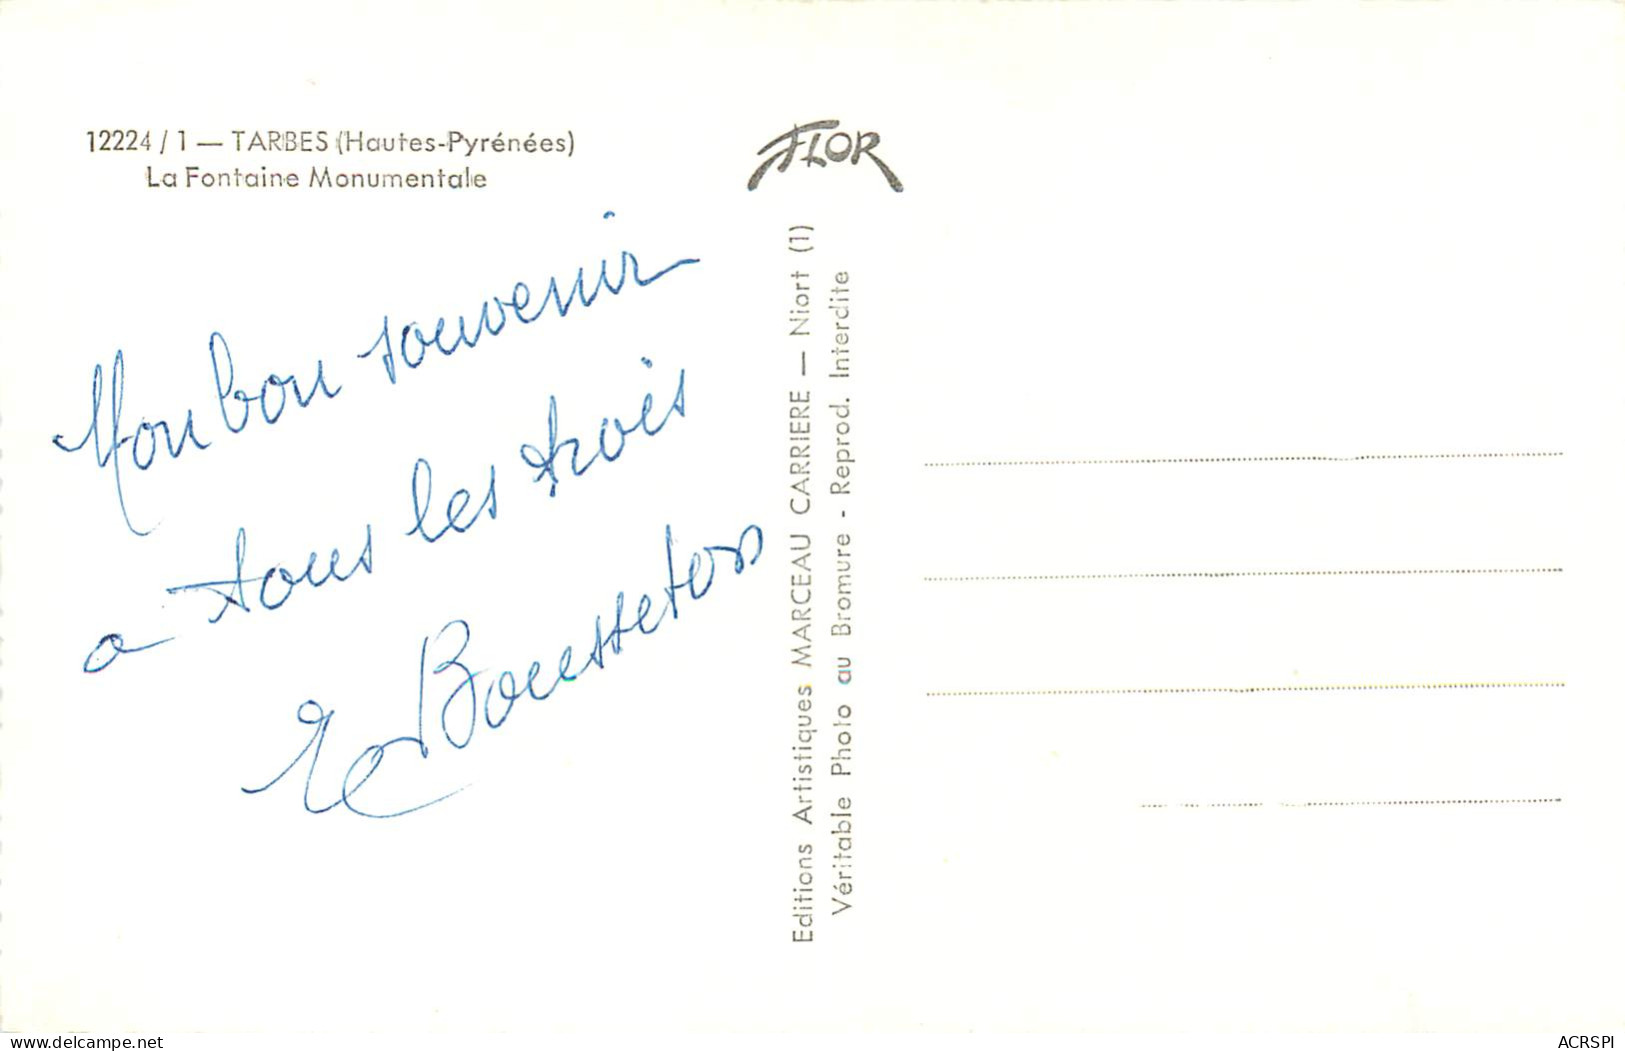 12224 / 1 — TARBES (Hautes-Pyrénées)
La Fontaine Monumentale
Mon bon souvenir
a tous les trois
FLOR
Editions Artistiques MARCEAU CARRIERE — Niort (1)
Véritable Photo au Bromure - Reprod. Interdite
www.delcampe.net
ACRSPI